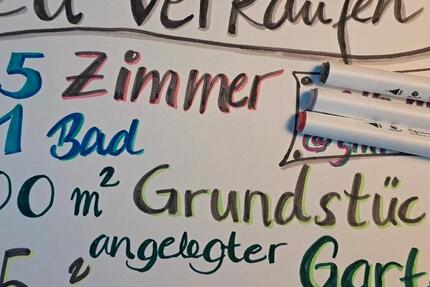 zu verkaufen
5 Zimmer
1 Bad
00 m² Grundstüc
angelegter
5 ² Gart